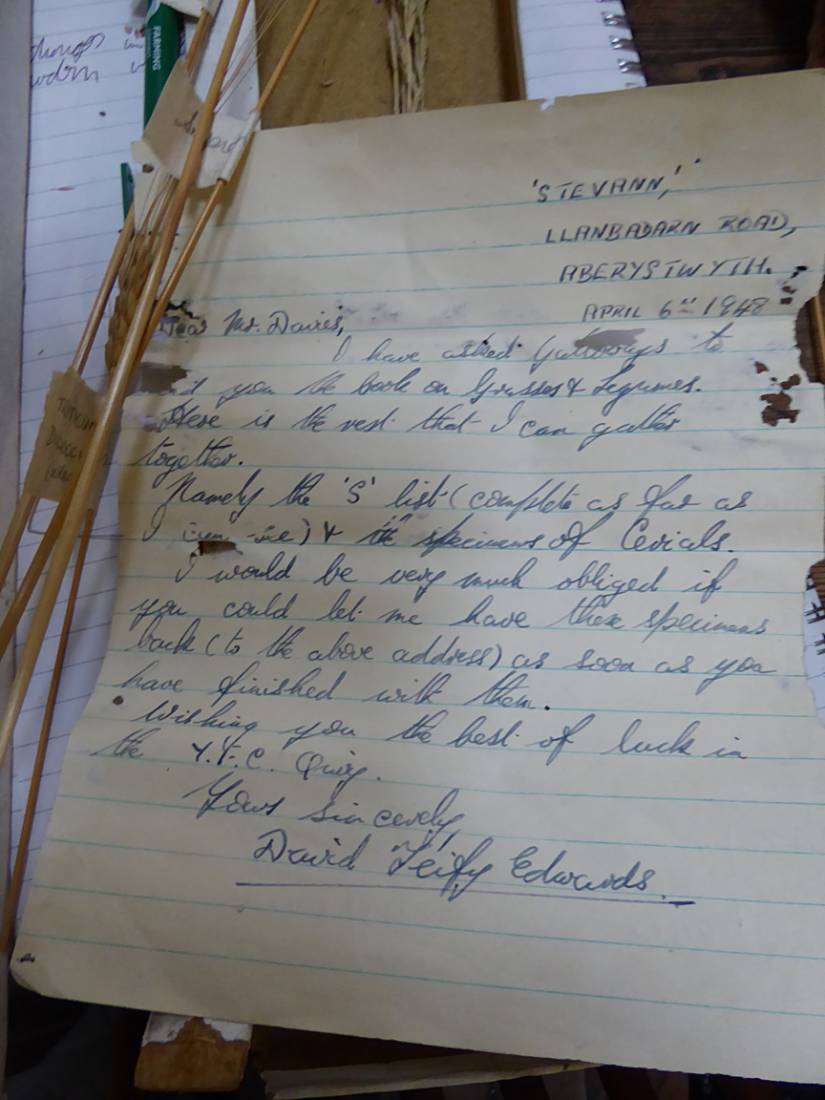 FARMING
'STEVANN,'
LLANBADARN ROAD,
ABERYSTWYTH.
APRIL 6TH 1948
Dear Mr. Davies,
I have asked Galloways to
you the book on Grasses & Legumes.
Here is the rest that I can gather
together.
Namely the 'S' list (complete as far as
I ) & the specimens of Cerials.
I would be very much obliged if
you could let me have these specimens
back (to the above address) as soon as you
have finished with them.
Wishing you the best of luck in
the Y.F.C. Quiz.
Yours sincerely,
David Teify Edwards.